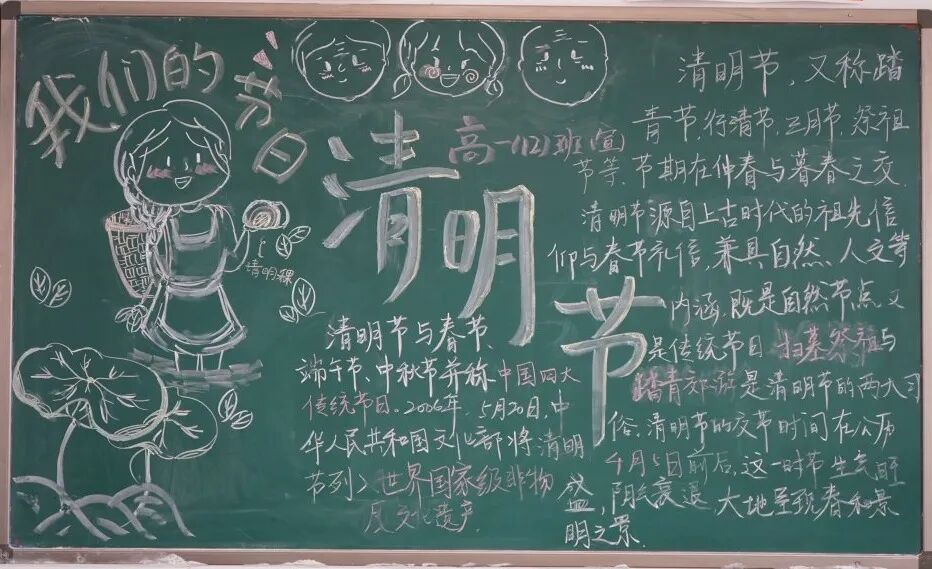 我们的
节日
高一(12)班(宣)
清明节
清明稞
清明节与春节、
端午节、中秋节并称中国四大
传统节日。2006年,5月20日,中
华人民共和国文化部将清明
节列入世界国家级非物
质文化遗产.
清明节,又称踏
青节,行清节、三月节、祭祖
节等、节期在仲春与暮春之交.
清明节源自上古时代的祖先信
仰与春节礼信,兼具自然、人文等
内涵,既是自然节点又
是传统节日.扫墓祭祖与
踏青郊游是清明节的两大习
俗.清明节的交节时间在公历
4月5日前后,这一时节生气旺
盛,阴气衰退,大地呈现春和景
明之景.